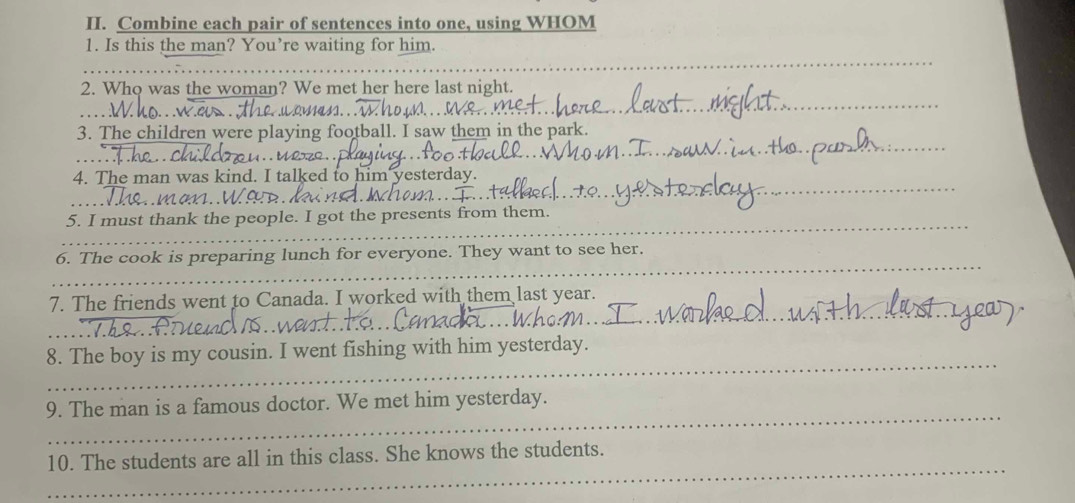 II. Combine each pair of sentences into one, using WHOM
1. Is this the man? You're waiting for him.
2. Who was the woman? We met her here last night.
Who was the woman whom we met here last night.
3. The children were playing football. I saw them in the park.
The children were playing football whom I saw in the park.
4. The man was kind. I talked to him yesterday.
The man was kind whom I talked to yesterday.
5. I must thank the people. I got the presents from them.
6. The cook is preparing lunch for everyone. They want to see her.
7. The friends went to Canada. I worked with them last year.
The friends went to Canada whom I worked with last year.
8. The boy is my cousin. I went fishing with him yesterday.
9. The man is a famous doctor. We met him yesterday.
10. The students are all in this class. She knows the students.